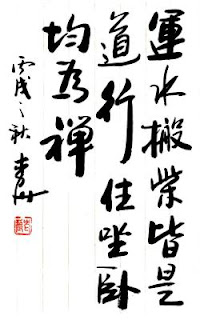 運水搬柴皆是
道行住坐卧
均為禪
丙戌之秋